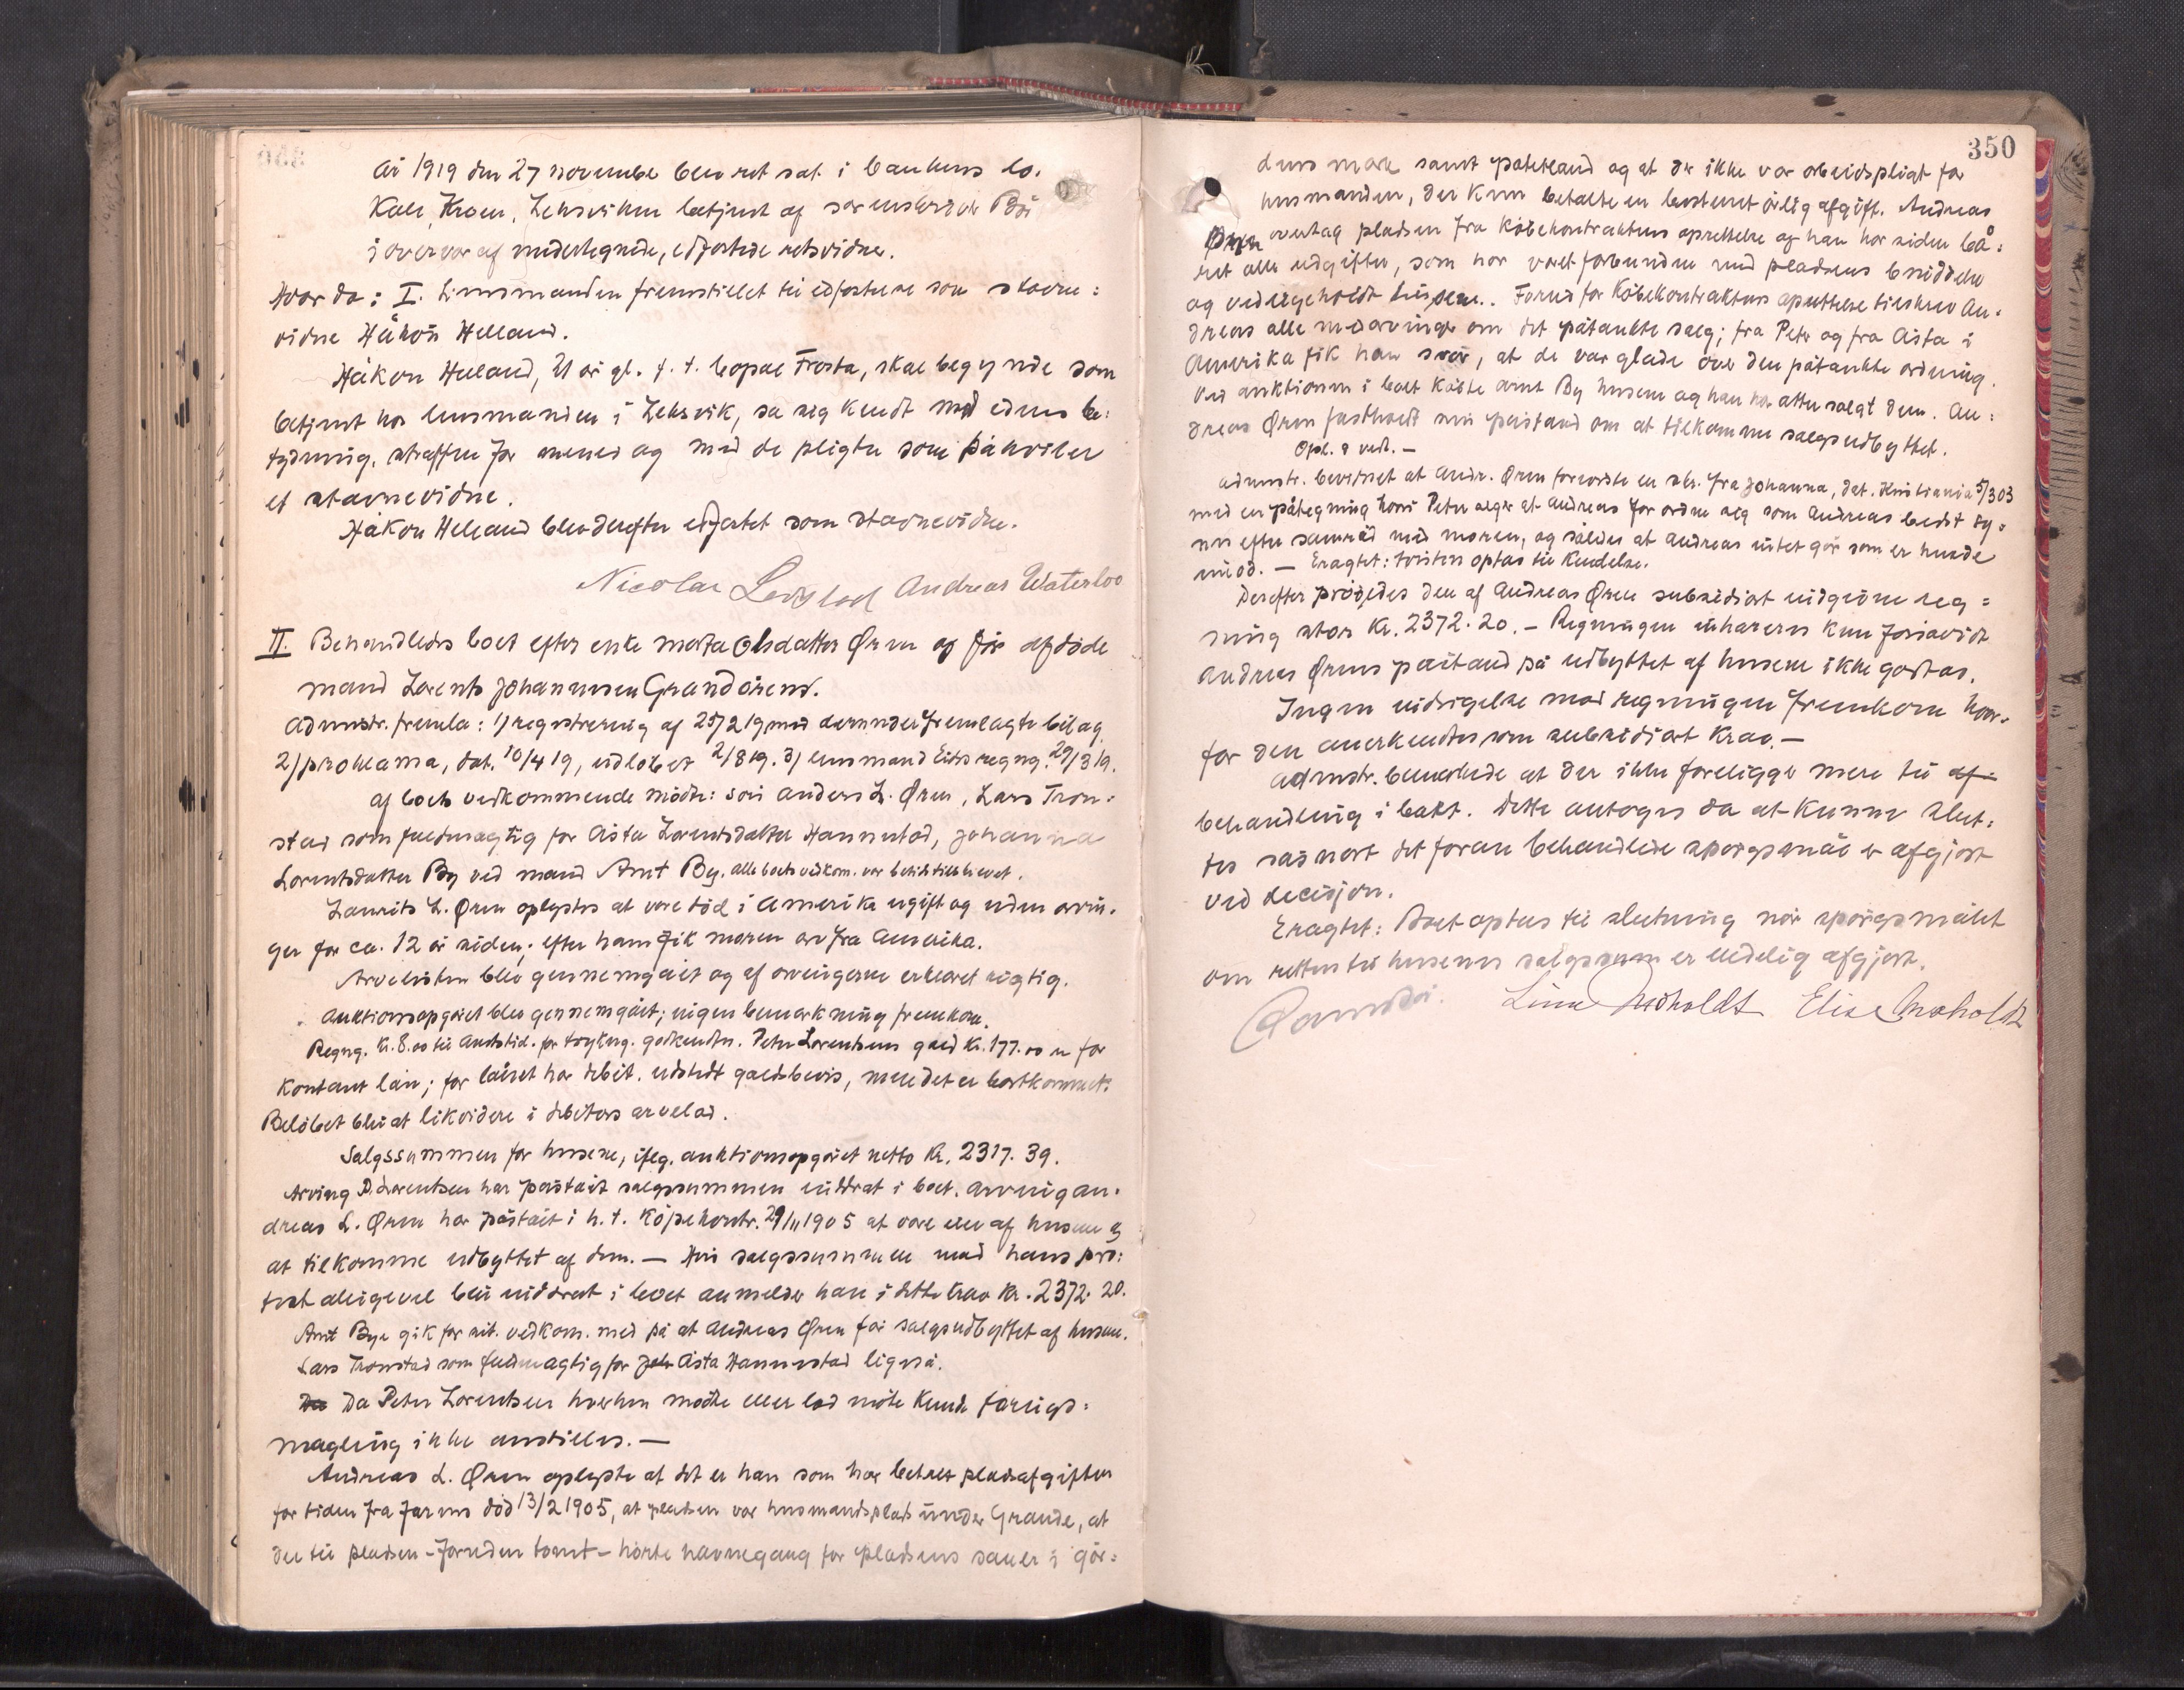 År 1919 den 27 november blev ret sat i bankens lo-
kale, Kroen, Leksviken betjent af sorenskriver Bøi
i overvær af undertegnede, edfæstede retsvidner.
Hvor da: I. Linsmanden fremstillet til edfæstelse som stævne=
vidne Håkon Helland.
Håkon Helland, 21 år gl. f. t. bopæl Frosta, skal begynde som
betjent hos lensmanden i Leksvik, sa sig kendt med edens be=
tydning, straffen for mened og med de pligter som påhviler
et stævnevidne.
Håkon Helland blev derefter edfæstet som stævnevidne.
Nicolai Andreas Waterloo
II. Behandledes boet efter enke Marta Olsdatter Øren og før afdøde
mand Lorents Johannesen Grandøren.
Admnstr. fremla: 1) registrering af 25/2 19 med derunder fremlagte bilag
2) proklama, dat. 10/4 19, udløbet 2/8 19. 3) lensmand regng. 29/3 19.
Af boets vedkommende mødte: søn Anders L. Øren, Lars Tron=
stad som fuldmægtig for Asta Lorentsdatter Hannestad, Johanna
Lorentsdatter By ved mand Arnt By. Alle boets vedkom. var betids tilskrevet.
Laurits L. Øren oplystes at være død i Amerika ugift og uden arvin-
ger for ca. 12 år siden; efter ham fik moren arv fra Amerika.
Arvelisten blev gennemgået og af arvingerne erklæret rigtig.
Auktionsopgøret blev gennemgået; ingen bemærkning fremkom.
Regng. kr. 8.00 til Amtstid. for trykng. godkendtes. Peter Lorentsens gæld kr. 177.00 er for
kontant lån; for lånet har debit. udstedt gældsbevis, men det er bortkommet.
Beløbet blir at likvidere i debitors arvelod.
Salgssummen for husene, iflg. auktionsopgøret netto kr. 2317.39.
Arving P. Lorentsen har påstået salgssummen inddrat i boet. Arving An-
dreas L. Øren har påstået i h. t. Köpekontr. 29/11 1905 at være eier af husene og
at tilkomme udbyttet af dem. — Hvis salgssummen mod hans pro=
test alligevel blir inddrat i boet anmelder han i dette krav kr. 2372.20.
Arnt Bye gik for sit vedkom. med på at Andreas Øren får salgsudbyttet af husene.
Lars Tronstad som fuldmægtig for Joh Asta Hannestad ligeså.
Da Da Peter Lorentsen hverken mødte eller lod møte kunde forligs=
mægling ikke anstilles. —
Andreas L. Øren oplyste at det er han som har betalt pladsafgiften
for tiden fra farens død 13/2 1905, at pladsen var husmandsplads under Grande, at
der til pladsen - foruden tomt - hørte havnegang for pladsens sauer i går=
350
dens mark samt potetland og at der ikke var arbeidspligt for
husmanden, der kun betalte en bestemt årlig afgift. Andreas
Øren overtog pladsen fra Købekontraktens oprettelse og han har siden bå=
ret alle udgifter, som har været forbunden med pladsens besiddelse
og vedligeholdt husene. Forud for Købekontraktens oprettelse tilskrev An=
dreas alle medarvinger om det påtænkte salg; fra Peter og fra Asta i
Amerika fik han svar, at de var glade over den påtænkte ordning.
Ved auktionen i boet købte Arnt By husene og han har atter solgt dem. An=
dreas Øren fastholdt sin påstand om at tilkomme salgsudbyttet.
Opl. & vedt. —
Admnstr. bevidnet at Andr. Øren foreviste en skr. fra Johanna, dat. Kristiania 5/3 03
med en påtegning hvori Peter siger at Andreas får ordne sig som Andreas bedst sy=
nes efter samråd med moren, og således at Andreas intet gør som er hende
imod. — Eragtet: tvisten optas til kendelse.
Derefter prøvedes den af Andreas Øren subsidiært indgivne reg=
ning stor kr. 2372.20. — Regningen inhæreres kun forsåvidt
Andreas Ørens påstand på udbyttet af husene ikke godtas.
Ingen indsigelse mod regningen fremkom hvor-
for den anerkendtes som subsidiært krav. —
Admstr. bemerkede at der ikke foreligger mere til af-
behandling i boet. Dette antoges da at kunne slut=
tes såsnart det foran behandlede spørgsmål er afgjort
ved decisjon.
Eragtet: Boet optas til slutning når spørgsmålet
om retten til husenes salgssum er endelig afgjort.
Line Elise